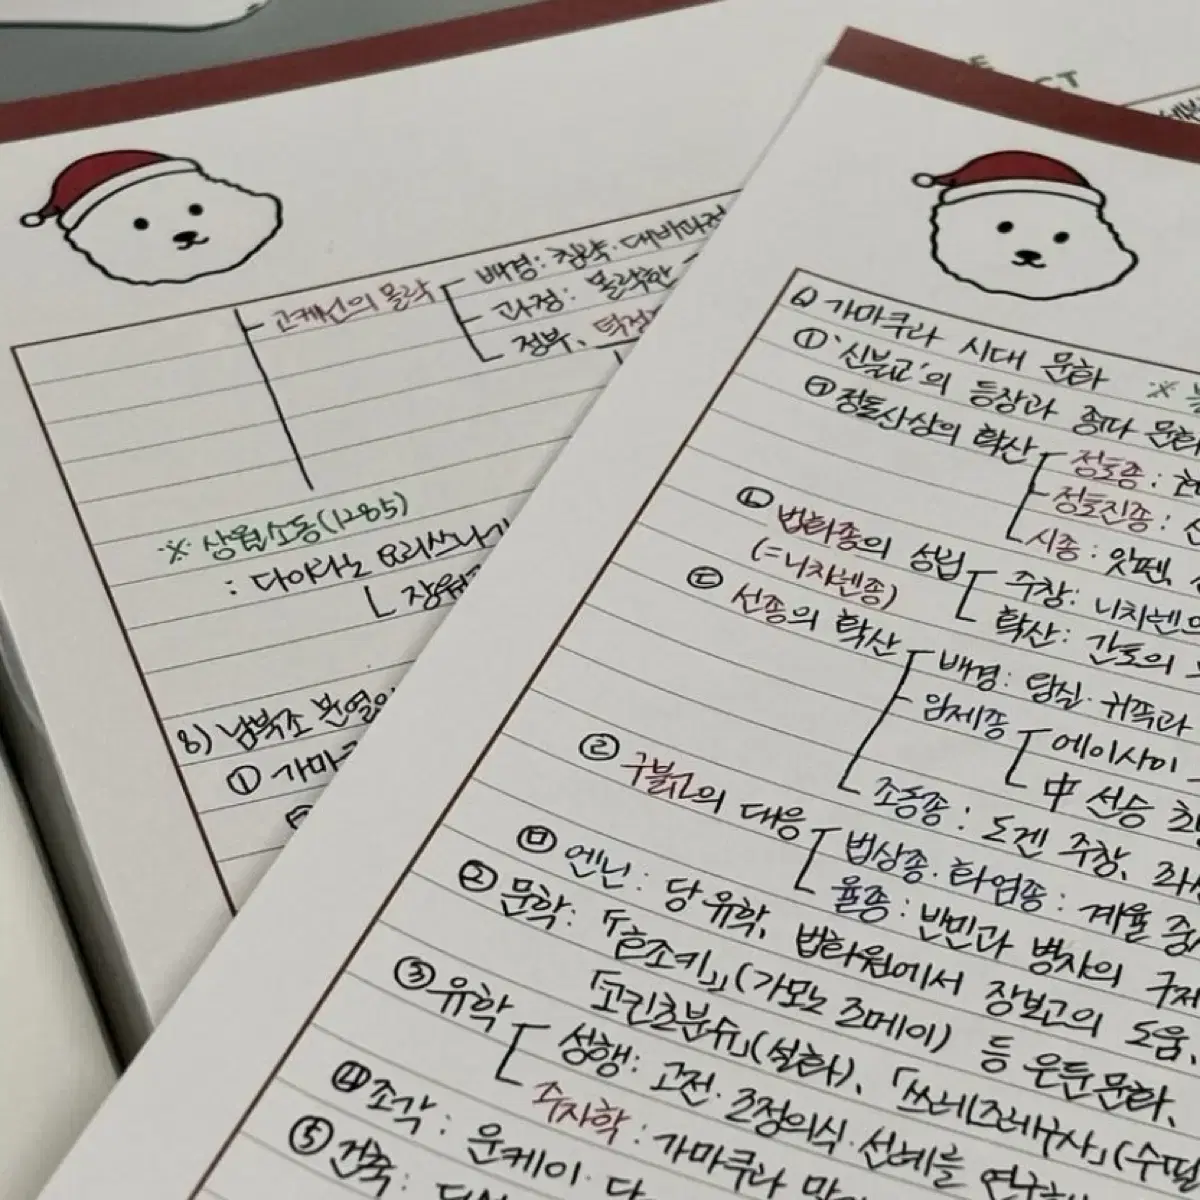 고케닌의 몰락
배경: 침략·대비과정
과정: 몰락한
정부, 덕정
※ 상월소동(1285)
: 다이라노 요리쓰나가
8) 남북조 분열
① 가마
6) 가마쿠라 시대 문화 ※
① '신불교'의 등장과 종파 문화
㉠ 정토신앙의 확산
정토종 :
정토진종 :
시종 : 잇펜,
㉡ 법화종의 성립
(=니치렌종)
주창: 니치렌의
확산: 간토의
㉢ 선종의 확산
배경: 답실·귀족과
임제종 에이사이
中 선승
조동종 : 도겐 주창, 좌선
㉣ 구불교의 대응
법상종·화엄종 : 계율 중시
율종 : 빈민과 병자의 구제
㉤ 엔닌 : 당 유학, 법화원에서 장보고의 도움,
② 문학: 『호조키』(가모노 조메이) 등 은둔문학,
「고킨초분슈」(설화), 「쓰레즈레구사」(수필)
③ 유학
성행: 고전·조정의식·선례를 연구
주자학 : 가마쿠라 말
④ 조각 : 운케이·
⑤ 건축 :